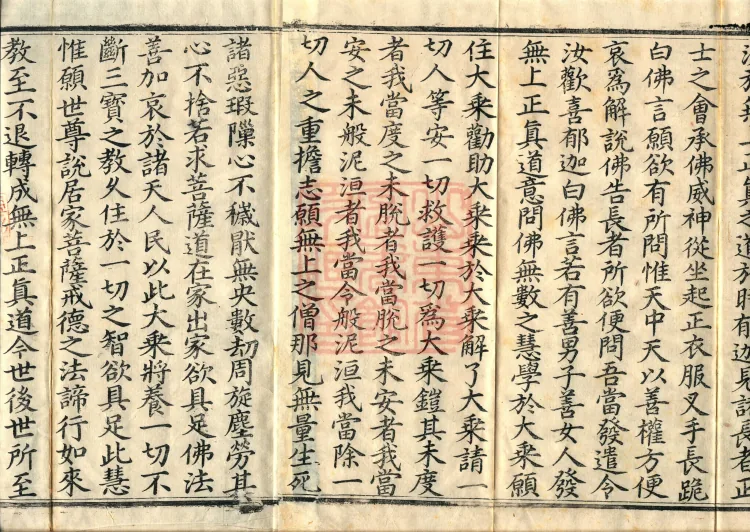 士之會承佛威神從坐起正衣服叉手長跪
白佛言願欲有所問惟天中天以善權方便
哀爲解說佛告長者所欲便問吾當發遣令
汝歡喜郁迦白佛言若有善男子善女人發
無上正真道意問佛無數之慧學於大乘願
住大乘勸助大乘乘於大乘解了大乘請一
切人等安一切救護一切爲大乘鎧其未度
者我當度之未脫者我當脫之未安者我當
安之未般泥洹者我當令般泥洹我當除一
切人之重擔志願無上之僧那見無量生死
諸惡瑕隟心不穢猒無央數劫周旋塵勞其
心不捨若求菩薩道在家出家欲具足佛法
善加哀於諸天人民以此大乘將養一切不
斷三寶之教久住於一切之智欲具足此慧
惟願世尊說居家菩薩戒德之法諦行如來
教至不退轉成無上正真道今世後世所至